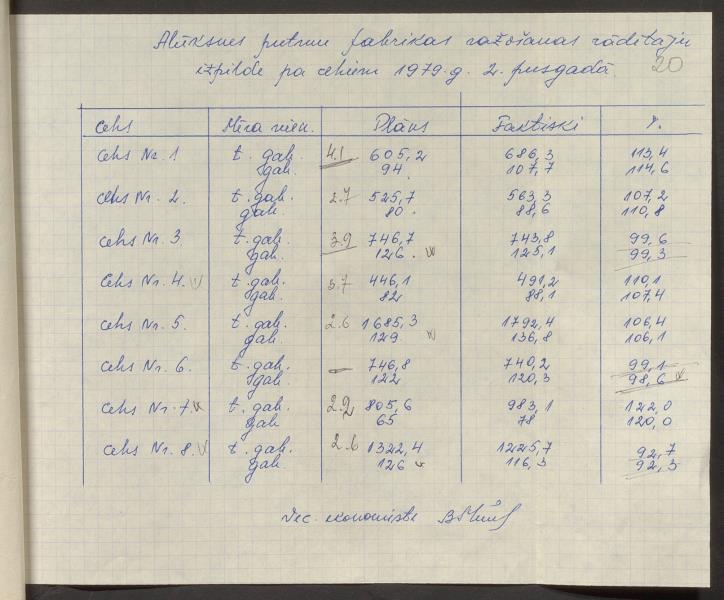 Alūksnes putnu fabrikas ražošanas rādītāju
izpilde pa cehiem 1979.g. 2. pusgadā.
20
Cehs Mēra vien. Plāns Faktiski %.
Cehs Nr. 1 t. gab. 4.1 605,2 686,3 113,4
gab. 94. 107,7 114,6
Cehs Nr. 2. t. gab. 2.7 525,7 563,3 107,2
gab. 80. 88,6 110,8
Cehs Nr. 3. t. gab. 3.9 746,7 743,8 99,6
gab. 126. v 125,1 99,3
Cehs Nr. 4. v t. gab. 5.7 446,1 491,2 110,1
gab. 82 88,1 107,4
Cehs Nr. 5. t. gab. 2.6 1685,3 1792,4 106,4
gab. 129. v 136,8 106,1
Cehs Nr. 6. t. gab. – 746,8 740,2 99,1
gab. 122 120,3 98,6 v
Cehs Nr. 7. v t. gab. 2.9 805,6 983,1 122,0
gab. 65 78 120,0
Cehs Nr. 8. v t. gab. 2.6 1322,4 1225,7 92,7
gab. 126 v 116,3 92,3
Vec. ekonomiste